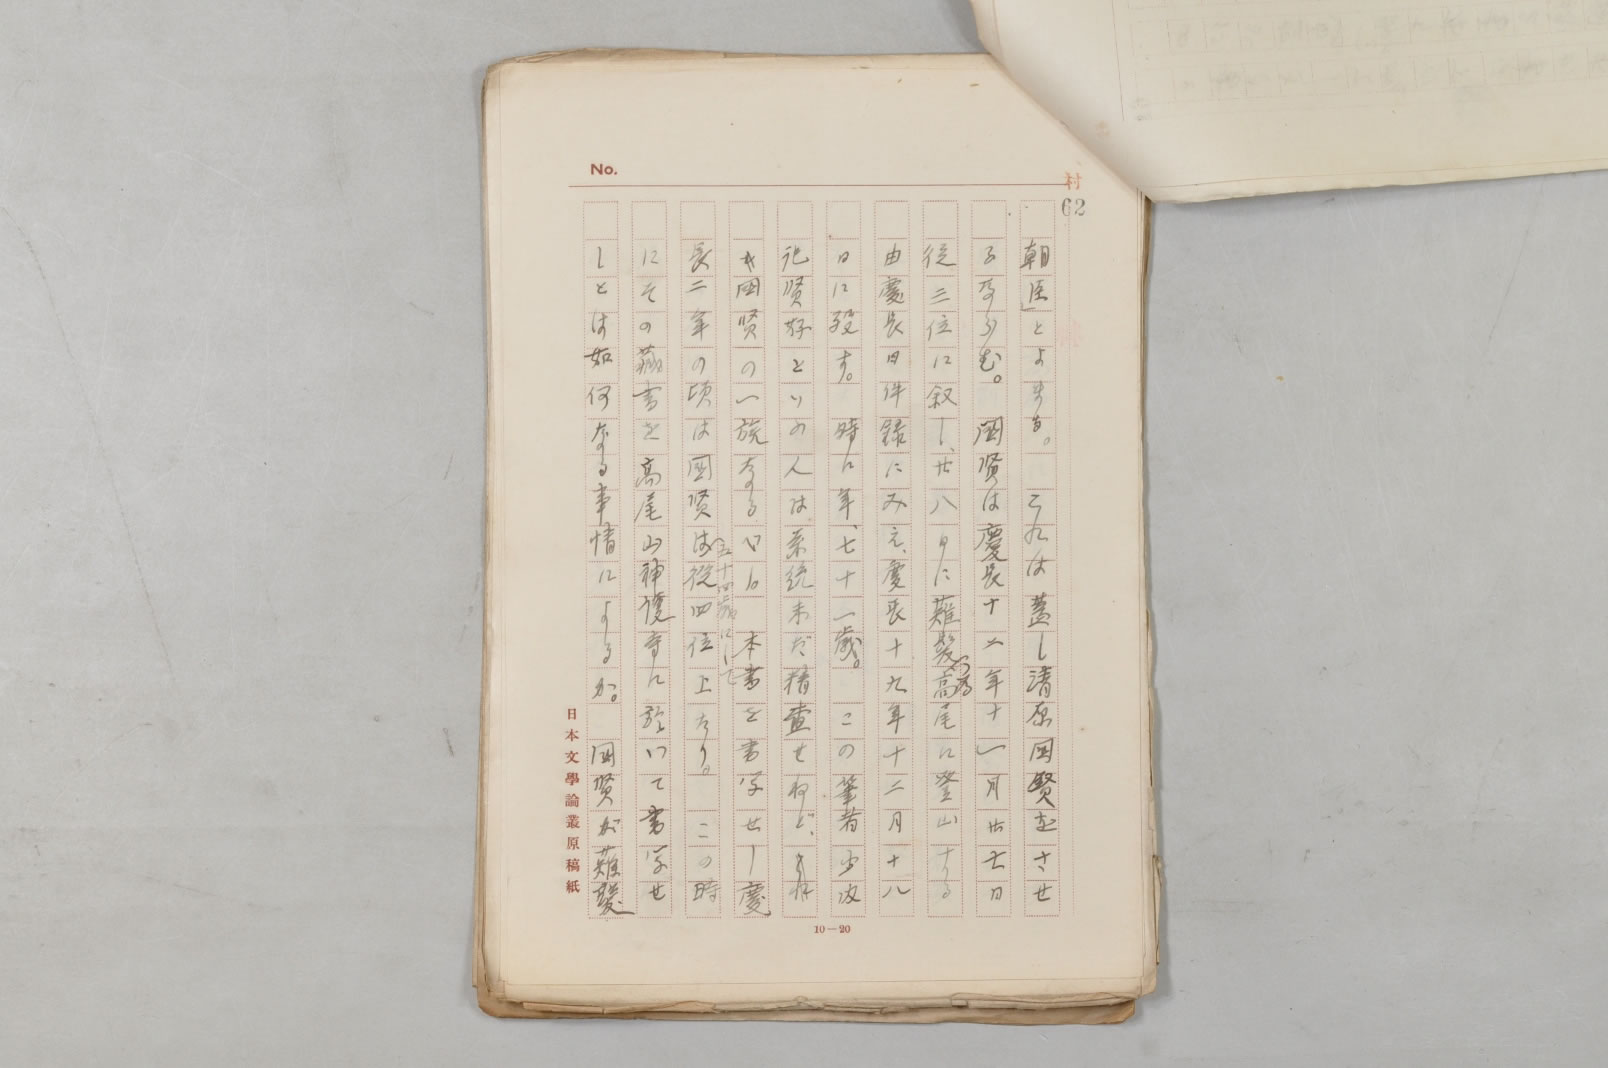 No.
村
62
朝臣」とよまる。これは蓋し清原国賢をさせ
るならむ。国賢は慶長十二年十一月廿七日
従三位に叙し、廿八日に薙髪高尾に登山する
由慶長日件録にみえ、慶長十九年十二月十八
日に歿す。時に年、七十一歳。この筆者少波
祀賢好といふ人は系統未だ精査せねど、これ
も国賢の一族なるべし。本書を書写せし慶
五十四歳にして
長二年の頃は国賢は従四位上たり。この時
にその蔵書を高尾山神護寺に於いて書写せ
しとは如何なる事情によるか。国賢が薙髪
日本文學論叢原稿紙
10—20